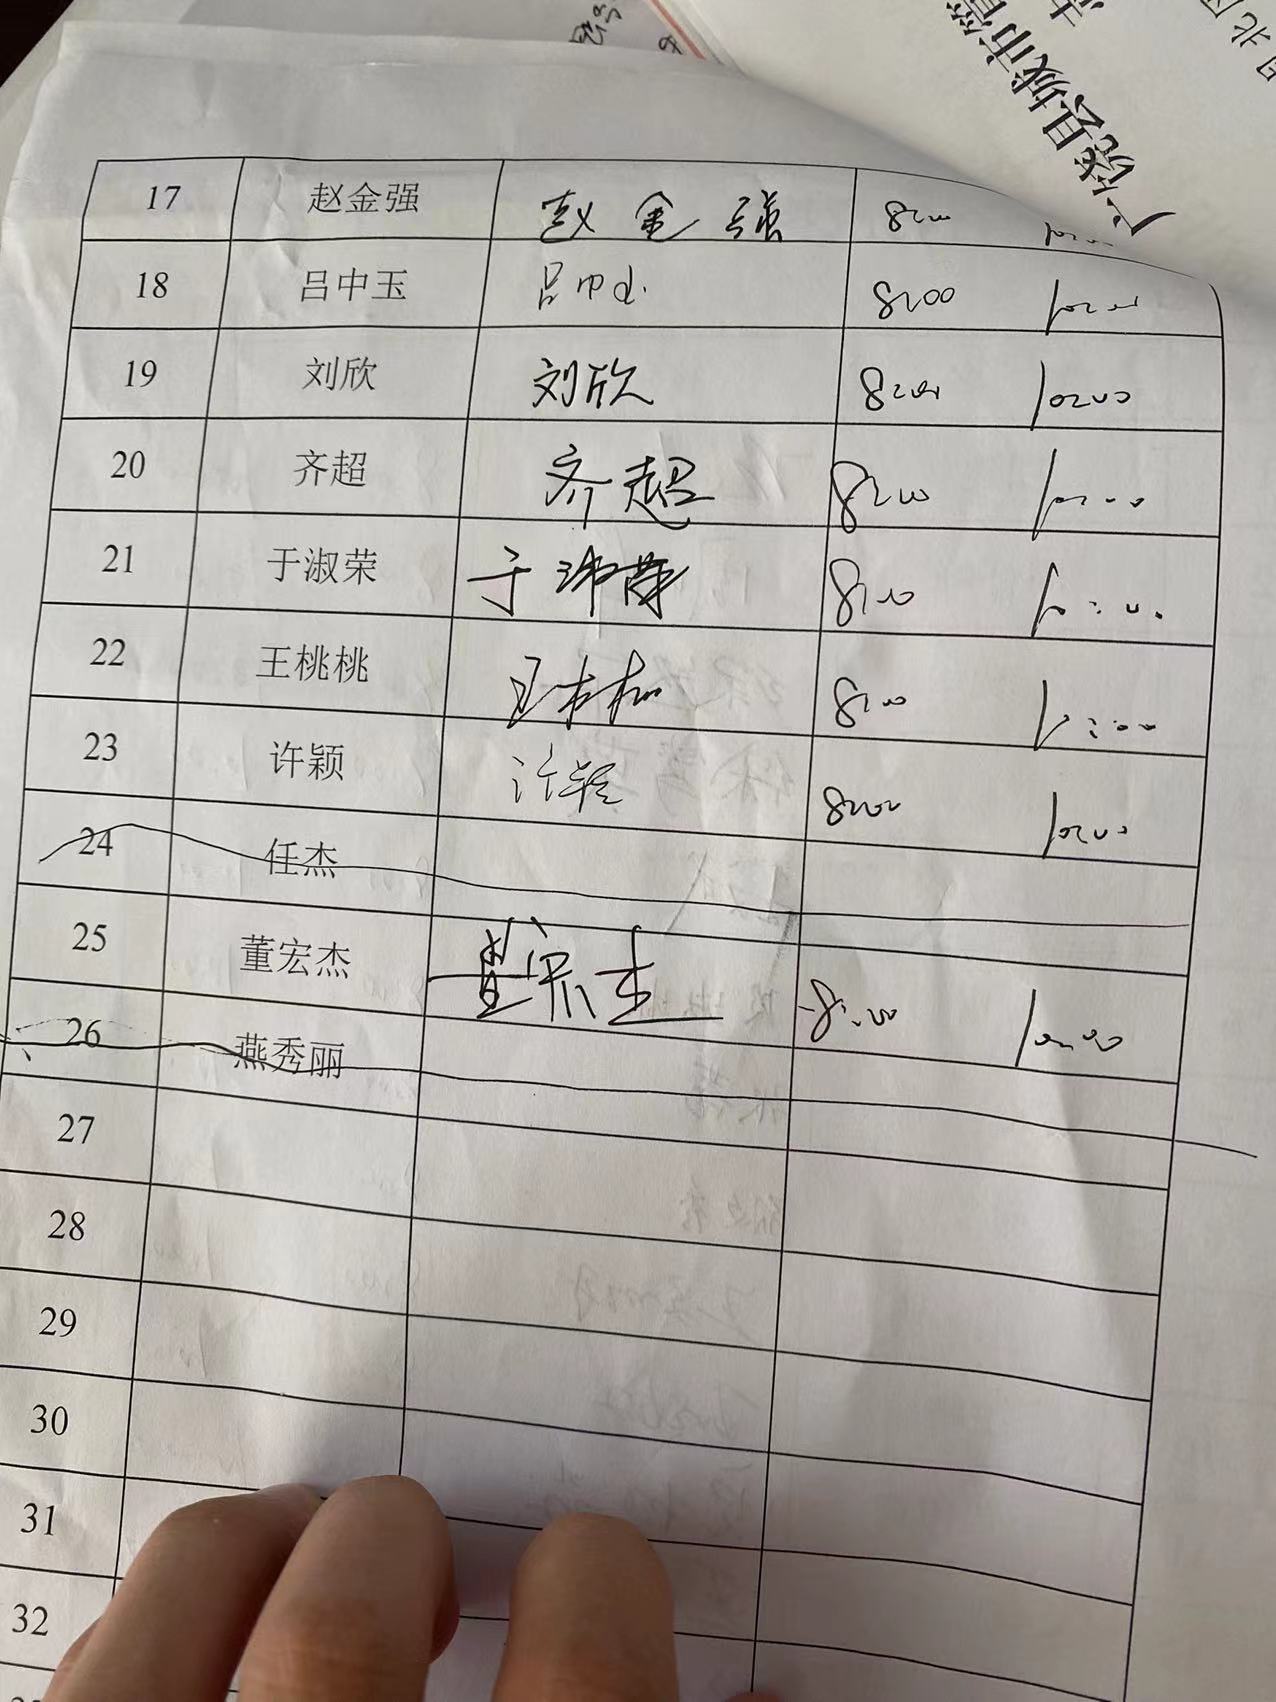 广饶县城市管
17 赵金强 赵金强 8200
18 吕中玉 吕中玉 8200 10200
19 刘欣 刘欣 8200 10200
20 齐超 齐超 8200 10200
21 于淑荣 于淑荣 8200 10200
22 王桃桃 王桃桃 8200 10200
23 许颖 许颖 8200 10200
24 任杰
25 董宏杰 董宏杰 8200 10200
26 燕秀丽
27
28
29
30
31
32